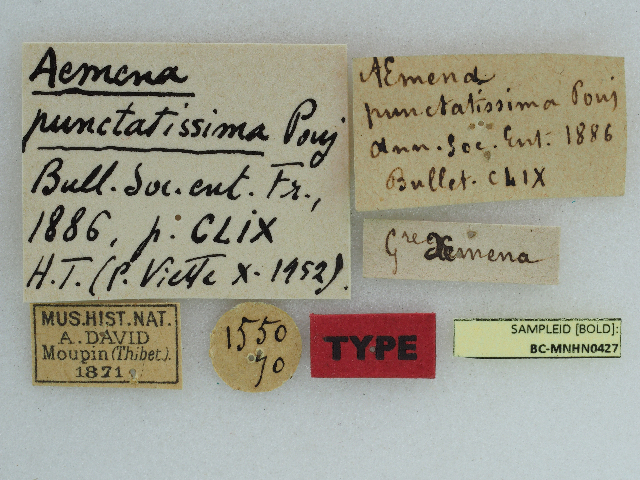 Aemena
punctatissima Pouj
Bull. Soc. ent. Fr.,
1886, p. CLIX
H.T. (P. Viette X-1952).
AEmena
punctatissima Pouj
Ann. Soc. Ent. 1886
Bullet. CLIX
Gre AEmena
MUS. HIST. NAT.
A. DAVID
Moupin (Thibet).
1871
1550
70
TYPE
SAMPLEID [BOLD]:
BC-MNHN0427